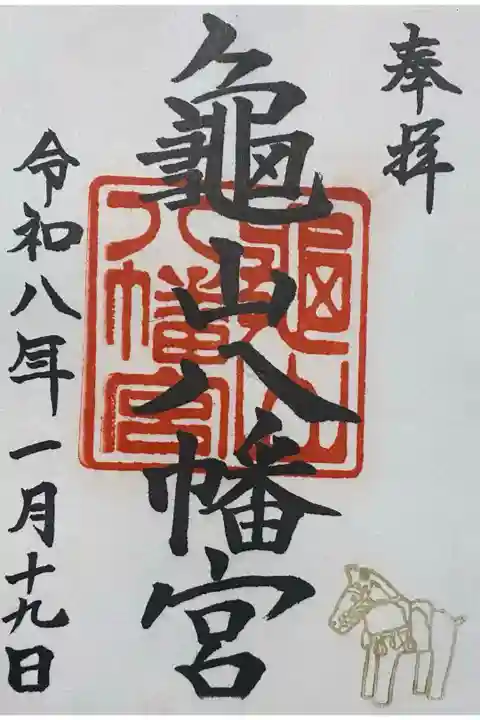 奉拝
龜山八幡宮
龜山
八幡宮
令和八年一月十九日